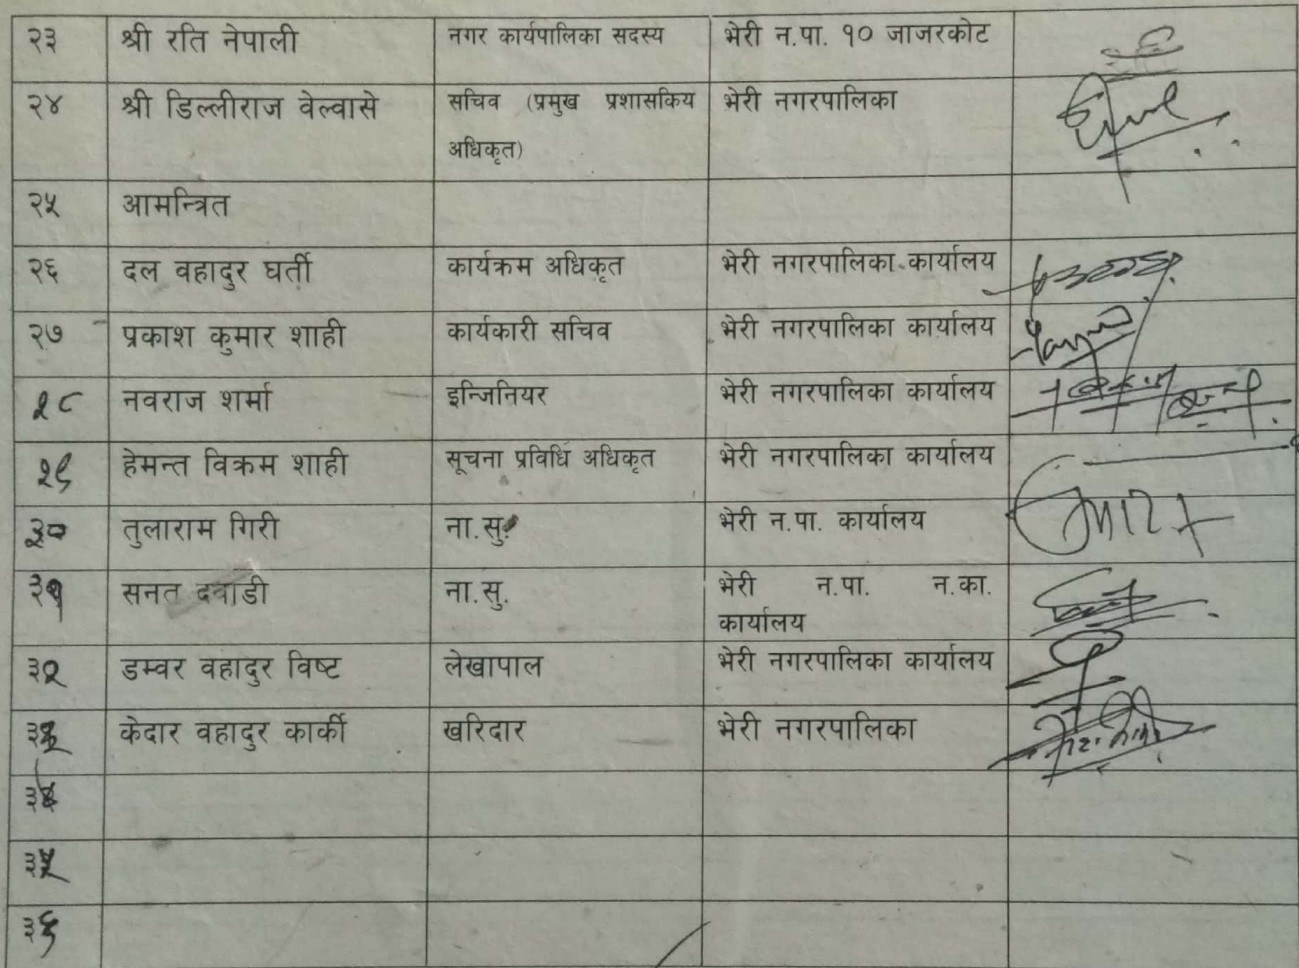 २३ श्री रति नेपाली नगर कार्यपालिका सदस्य भेरी न.पा. १० जाजरकोट
२४ श्री डिल्लीराज वेल्वासे सचिव (प्रमुख प्रशासकिय भेरी नगरपालिका
अधिकृत)
२५ आमन्त्रित
२६ दल वहादुर घर्ती कार्यक्रम अधिकृत भेरी नगरपालिका कार्यालय
२७ प्रकाश कुमार शाही कार्यकारी सचिव भेरी नगरपालिका कार्यालय
२८ नवराज शर्मा इन्जिनियर भेरी नगरपालिका कार्यालय
२९ हेमन्त विक्रम शाही सूचना प्रविधि अधिकृत भेरी नगरपालिका कार्यालय
३० तुलाराम गिरी ना.सु. भेरी न.पा. कार्यालय
३१ सनत दवाडी ना.सु. भेरी न.पा. न.का.
कार्यालय
३२ डम्वर वहादुर विष्ट लेखापाल भेरी नगरपालिका कार्यालय
३३ केदार वहादुर कार्की खरिदार भेरी नगरपालिका
३४
३५
३६